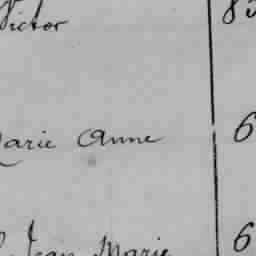 Victor 85
Marie Anne 6
Jean Marie 6